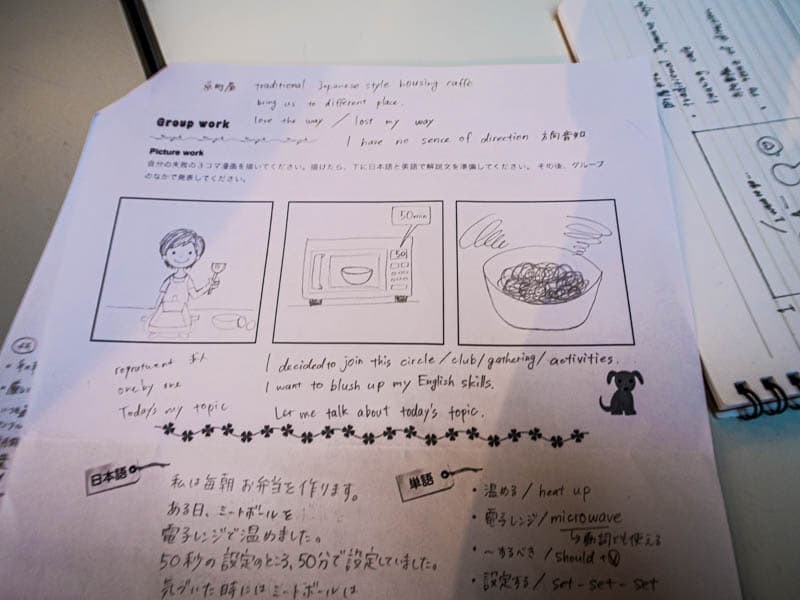 京町屋 traditional Japanese style housing caffe
bring us to different place.
love the way / lost my way
Group work
I have no sense of direction 方向音知
Picture work
自分の失敗の3コマ漫画を描いてください。描けたら、下に日本語と英語で解説文を準備してください。その後、グループ
のなかで発表してください。
50min
50
I decided to join this circle / club / gathering / activities.
one by one
I want to blush up my English skills.
Today's my topic
Let me talk about today's topic.
日本語
私は毎朝お弁当を作ります。
ある日、ミートボールを
電子レンジで温めました。
50秒の設定のところ、50分で設定していました。
気づいた時にはミートボールは
単語
・温める / heat up
・電子レンジ / microwave
↳動詞でも使える
・〜するべき / should + V
・設定する / set - set - set